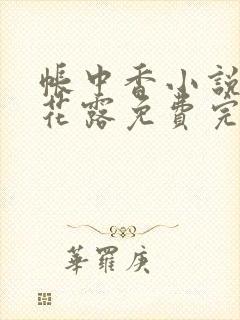 帳中香小說
花露免費完
華羅庚